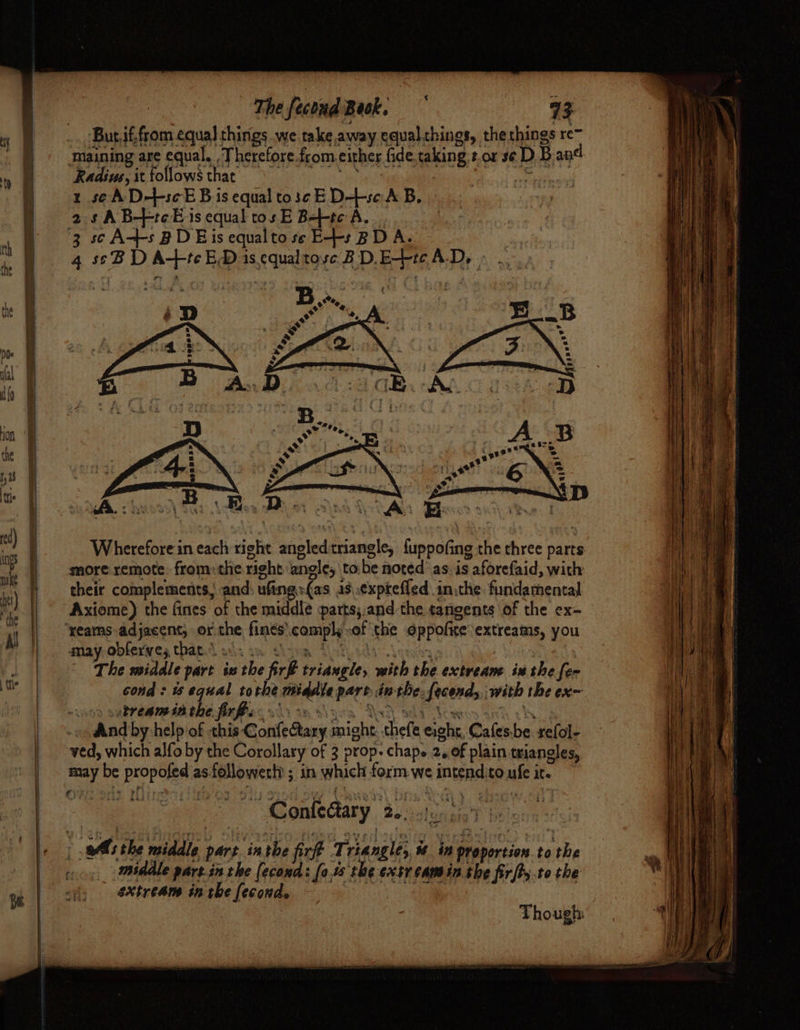 The ſecond Book. 73
But if from equal things we take away equal things, the things re-
maining are equal. Therefore from either ſide taking t or sc D B and
Radius, it follows that
1 sc A D+sc E B is equal to sc E D+sc A B.
2 s A B+tc E is equal to s E B+tc A.
3 sc A+s B D E is equal to sc E+s B D A.
4 sc B D A+tc E D is equal to sc B D E+tc A D.
D B A E B
1 2 3
E B A D E A D
D B E A B
4 5 6
A B E D A E D
Wherefore in each right angled triangle, ſuppoſing the three parts
more remote from the right angle, to be noted as is aforeſaid, with
their complements, and uſing (as is expreſſed in the fundamental
Axiome) the ſines of the middle parts, and the tangents of the ex-
treams adjacent, or the ſines compl. of the oppoſite extreams, you
may obſerve, that
The middle part in the firſt triangle, with the extream in the ſe-
cond : is equal to the middle part in the ſecond, with the ex-
tream in the firſt.
And by help of this Conſectary might theſe eight Caſes be reſol-
ved, which alſo by the Corollary of 3 prop. chap. 2. of plain triangles,
may be propoſed as followeth ; in which form we intend to uſe it.
Conſectary 2.
As the middle part in the firſt Triangle, is in proportion to the
middle part in the ſecond : ſo is the extream in the firſt, to the
extream in the ſecond.
Though